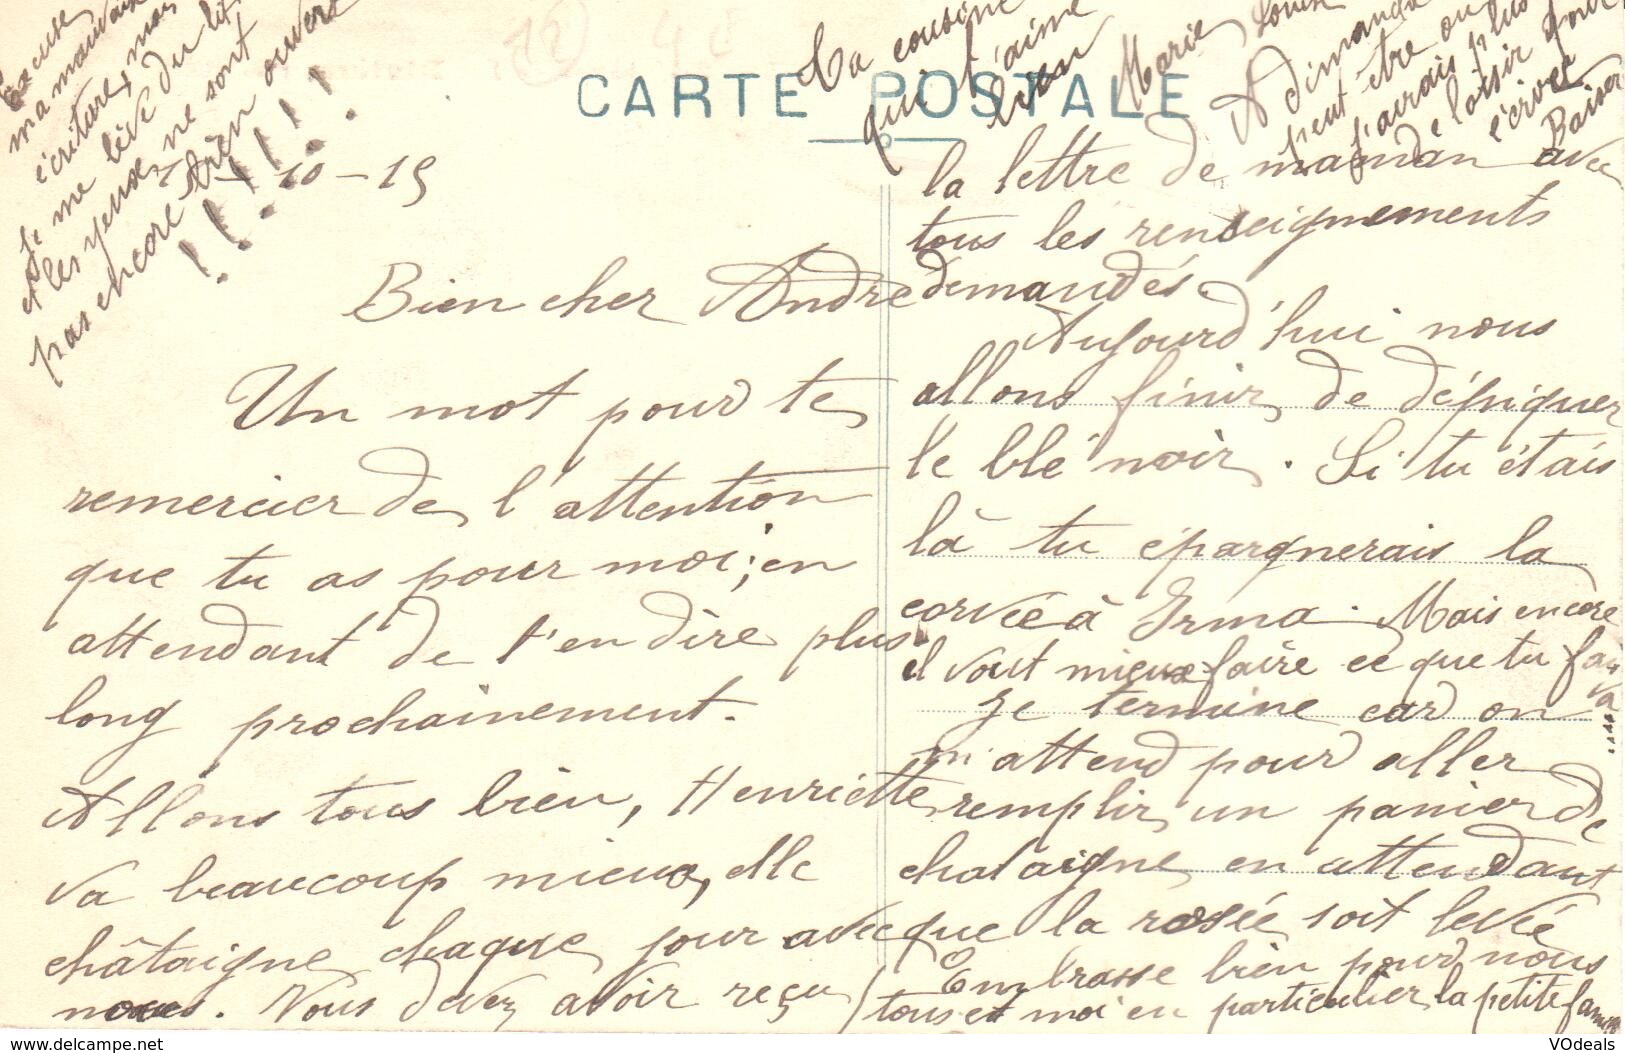 CARTE POSTALE
Excuse
ma mauvaise
écriture, mais
Je me lève du lit
et les yeux ne sont
pas encore bien ouvert
!!!!!!!
10-15
Bien cher André
Un mot pour te
remercier de l'attention
que tu as pour moi; en
attendant de t'en dire plus
long prochainement.
Allons tous bien, Henriette
va beaucoup mieux, elle
châtaigne chaque jour avec
nous. Nous devez avoir reçu
la lettre de maman avec
tous les renseignements
demandés
Aujourd'hui nous
allons finir de défriquer
le blé noir. Si tu étais
là tu épargnerais la
corvée à Irma. Mais encore
il vaut mieux faire ce que tu fais
va
Je termine car on
m'attend pour aller
remplir un panier de
chataigne en attendant
que la rosée soit levée
Embrasse bien pour nous
tous et moi en particulier la petite
Ta cousine
qui t'aime
bien
Marie Louise
A dimanche
peut être ou
j'aurais plus
de loisir pour
t'écrire
Baiser
VOdeals
www.delcampe.net